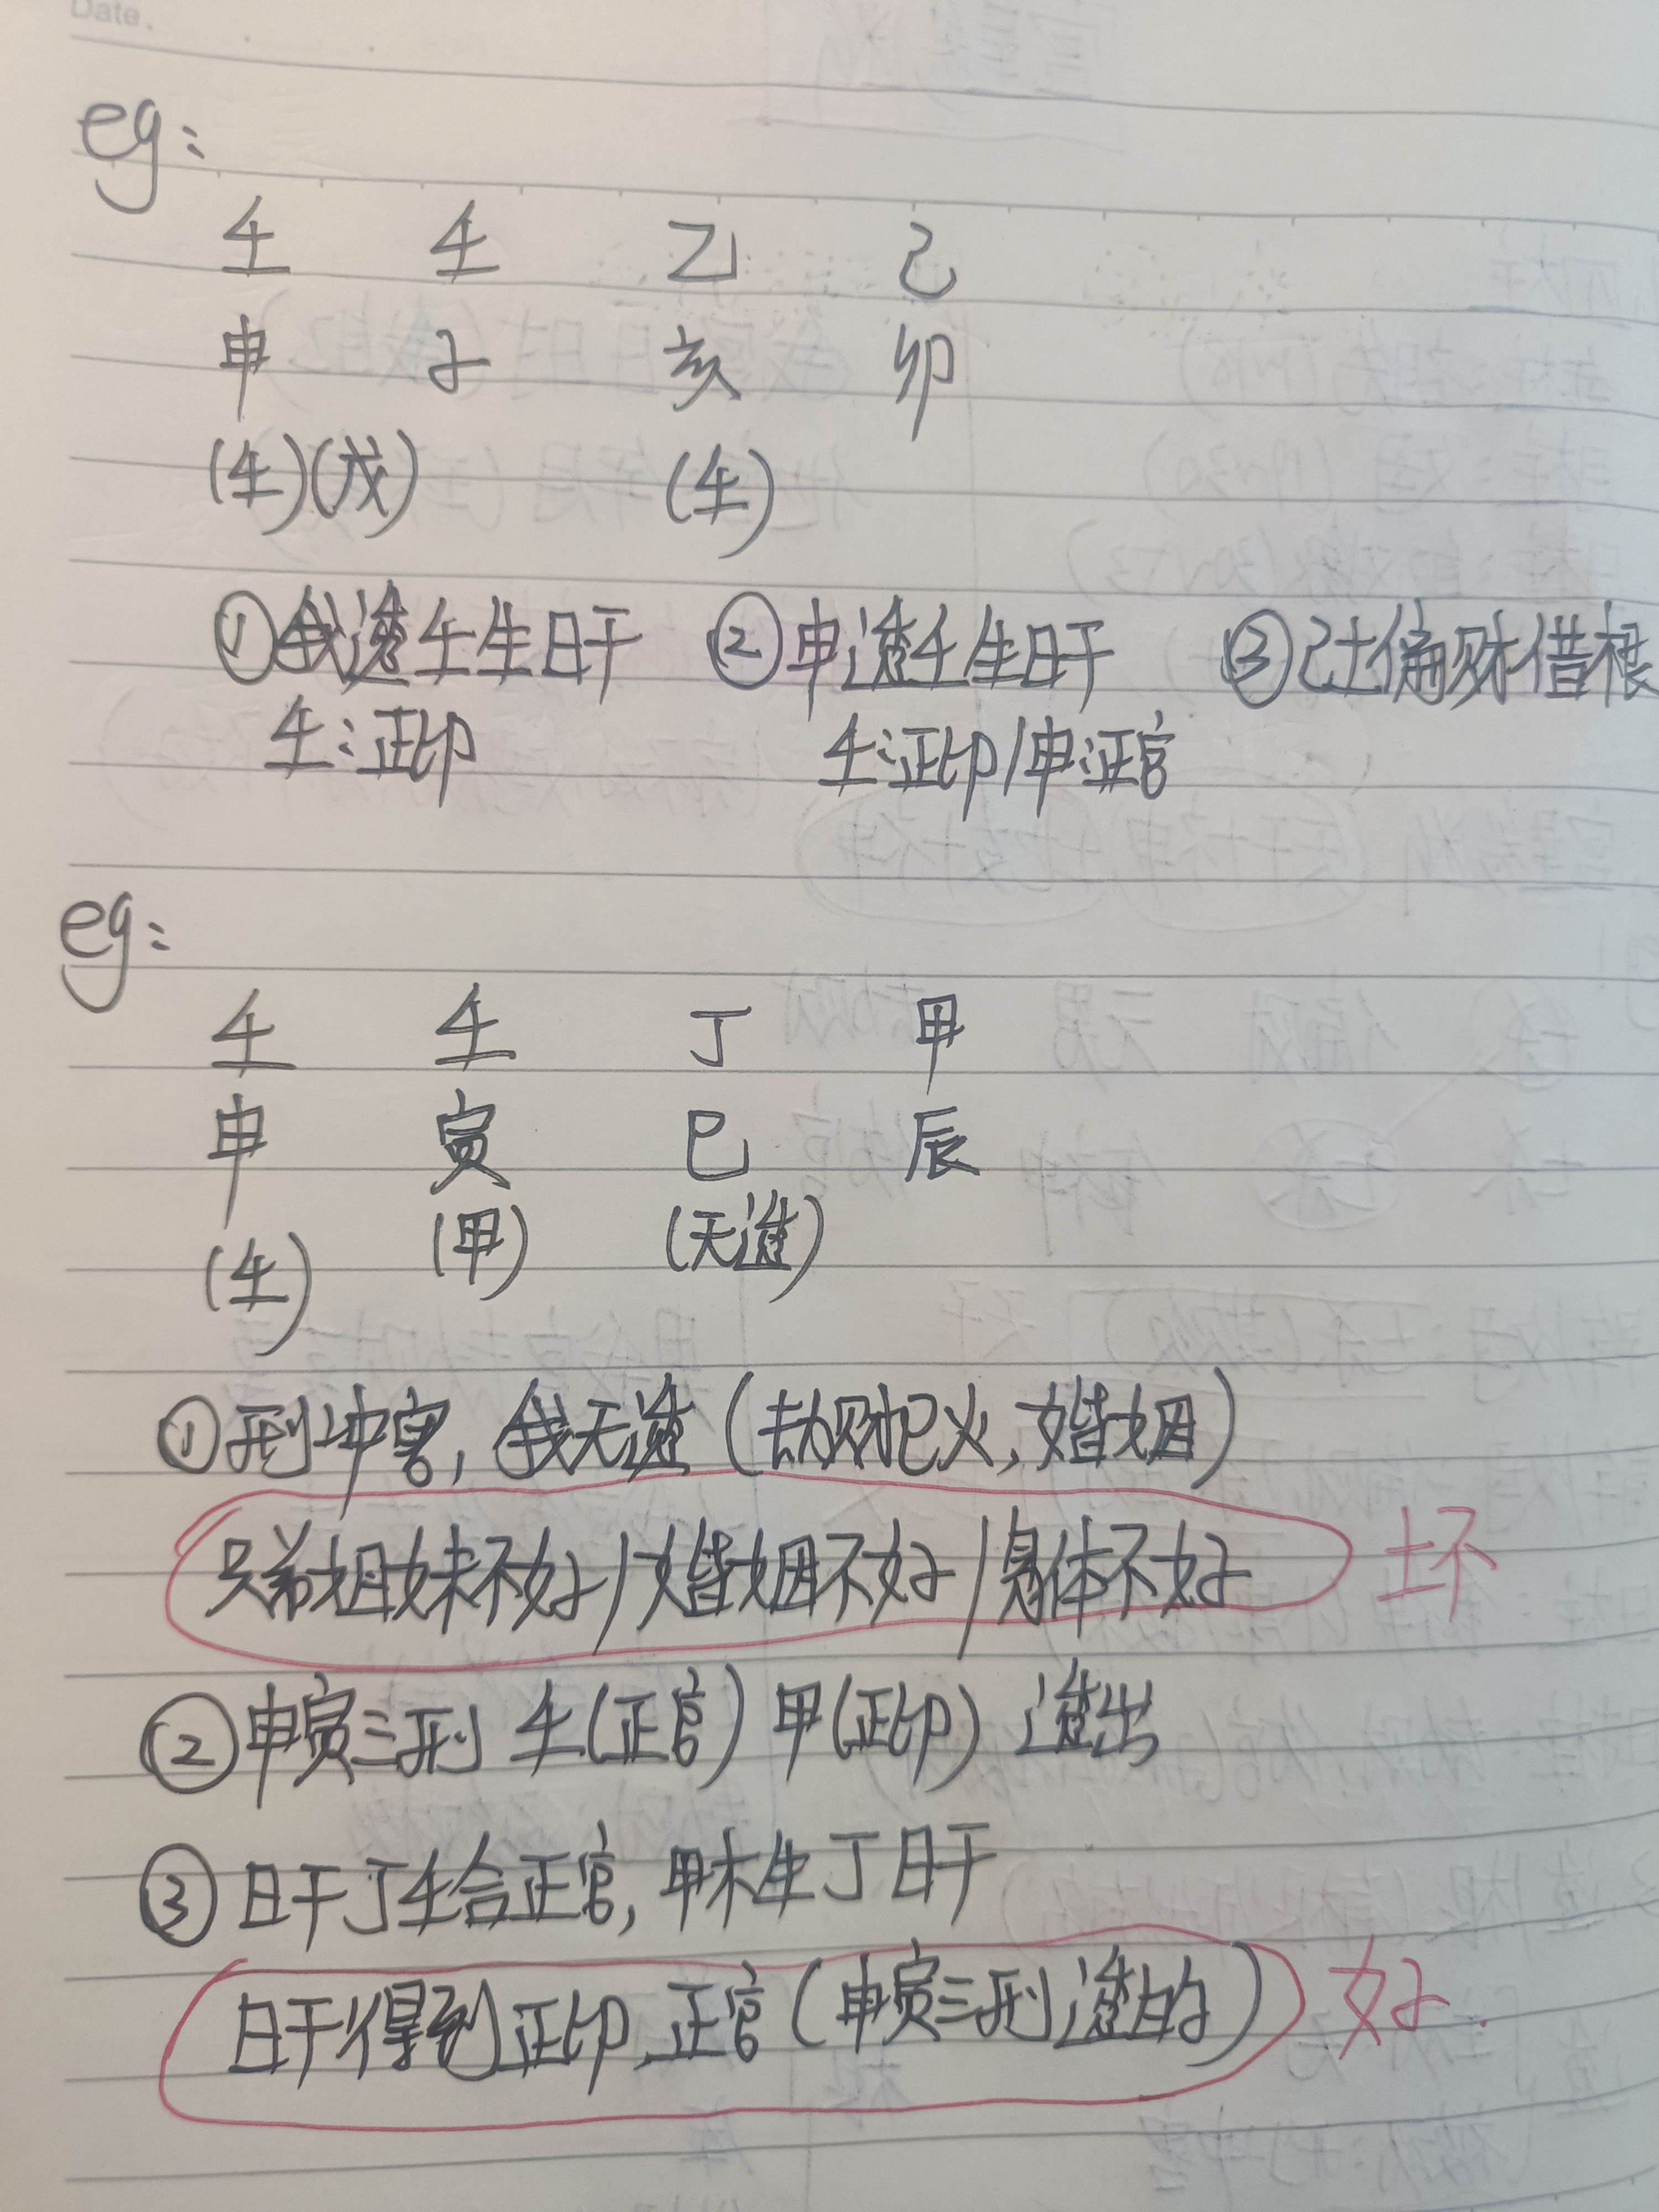 Date.
eg:
壬 壬 乙 己
申 子 亥 卯
(壬)(戊) (壬)
①我透壬生日干 ②申透壬生日干 ③己土偏财借根
壬:正印 壬:正印/申:正官
eg:
壬 壬 丁 甲
申 寅 巳 辰
(壬) (甲) (无透)
①刑冲害,我无透(劫财巳火,婚姻)
兄弟姐妹不好/婚姻不好/身体不好 坏
②申寅三刑 壬(正官) 甲(正印) 透出
③日干丁壬合正官,甲木生丁日干
日干得到正印,正官(申寅三刑透的) 好